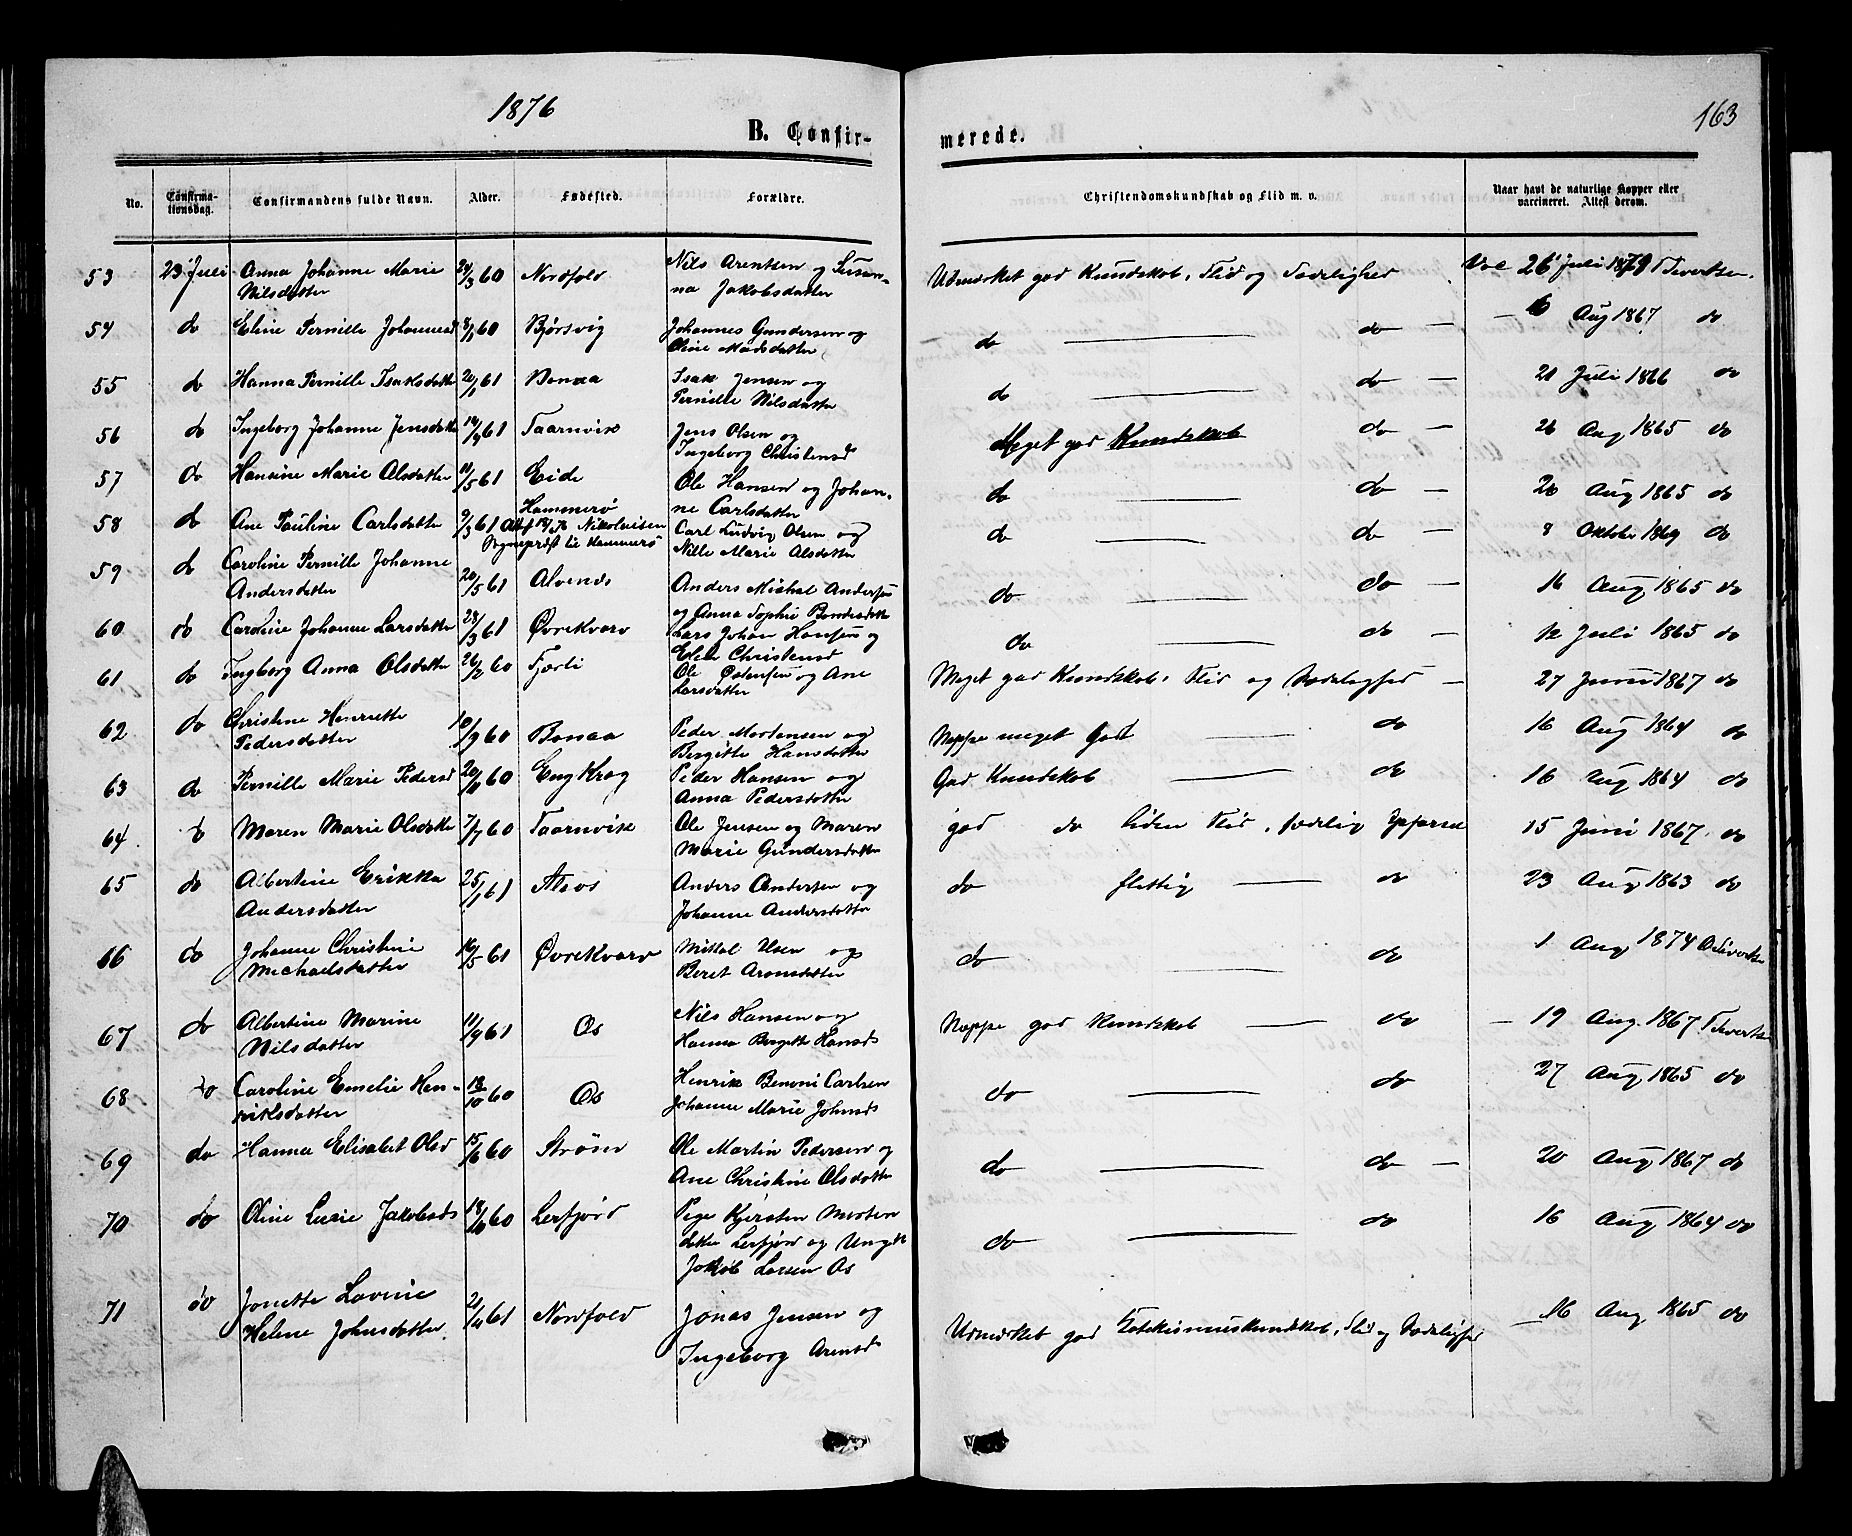 1876
163
B. Confir-
merede.
No.
Confirma-
tionsdag.
Confirmandens fulde Navn.
Alder.
Fødested.
Forældre.
Christendomskundskab og Flid m. v.
Naar havt de naturlige Kopper eller
vaccineret. Attest derom.
53 23 Juli Anna Johanne Marie 24/3 60 Nordfold Nils Arentsen og Susan- Udmærket god Kundskab, Flid og Sædelighed Vac 26 Juli
Nilsdatter na Jakobsdatter
54 do Eline Pernille Johannesd 60 Bjørsvig Johannes Gundersen og do — do — 6 Aug 1867 do
Oline Madsdatter
55 do Hanna Pernille Isaksdatter 61 Bonaa Isak Jensen og do — do — 21 Juli 1866 do
Pernille Nilsdatter
56 do Ingeborg Johanne Jensdatter 61 Taarnvik Jens Olsen og Meget god Kundskab do — 26 Aug 1865 do
Ingeborg Christensd
57 do Hansine Marie Olsdatter 11/5 61 Eide Ole Hansen og Johan- do — do — 20 Aug 1865 do
ne Carlsdatter
58 do Ane Pauline Carlsdatter 9/3 61 Hammerø Carl Ludvig Olsen og do — do — 8 Oktober 1869 do
Nikolaisen
Sogneprest til Hammerø Nille Marie Olsdatter
59 do Caroline Pernille Johanne
Andersdatter 20/5 61 Alvenes Anders Michal Andersen do — do — 16 Aug 1865 do
og Anna Sophie
60 do Caroline Johanne Larsdatter 28/3 61 Øvrekvarv Lars Johan Hansen og do — do — 12 Juli 1865 do
Christensd
61 do Ingborg Anna Olsdatter 26/2 60 Færli Ole Østensen og Ane Meget god Kundskab, Flid og Sædelighed — 27 Juni 1867 do
Larsdatter
62 do Christine Henriette 10/9 60 Bonaa Peder Mortensen og Neppe meget God — do 16 Aug 1864 do
Pedersdatter Bergitte Hansdatter
63 do Pernille Marie Pedersd 60 Engkrog Peder Hansen og God Kundskab — do 16 Aug 1864 do
Anna Pedersdatter
64 do Maren Marie Olsdatter 7/7 60 Taarnvik Ole Jensen og Maren god do liden Flid, sædelig Opførsel 15 Juni 1867 do
Marie Gundersdatter
65 do Albertine Erikka 25/1 61 Anders Andersen og do flittig — do 23 Aug 1863 do
Andersdatter Johanne Andersdatter
66 do Johanne Christine 16/5 61 Øvrekvarv Mikkal Olsen og do — do 1 Aug 1874
Michaelsdatter Beret Aronsdatter
67 do Albertine Marine 11/9 61 Os Nils Hansen og Neppe god Kundskab — do — 19 Aug. 1867
Nilsdatter Hanna Bergette Hansd
68 do Caroline Emelie Hen- 13/10 60 Os Henrik Benoni Carlsen do — do 27 Aug 1865 do
riksdatter Johanne Marie Johnsd
69 do Hanna Elisabet Olsd 15/6 60 Strøm Ole Martin Pedersen og do — do — 20 Aug 1867 do
Ane Christine Olsdatter
70 do Oline Lusie Jakobsd 60 Lerfjord Pige Kjersten Morten do — do 16 Aug 1864 do
datter Lerfjord og Ungk
Jakob Larsen Os
71 do Jonette Lovine 61 Nordfold Jonas Jensen og Udmærket god Katekismuskundskab, Flid og Sædelighed — 16 Aug 1865 do
Helene Johnsdatter Ingeborg Arensd